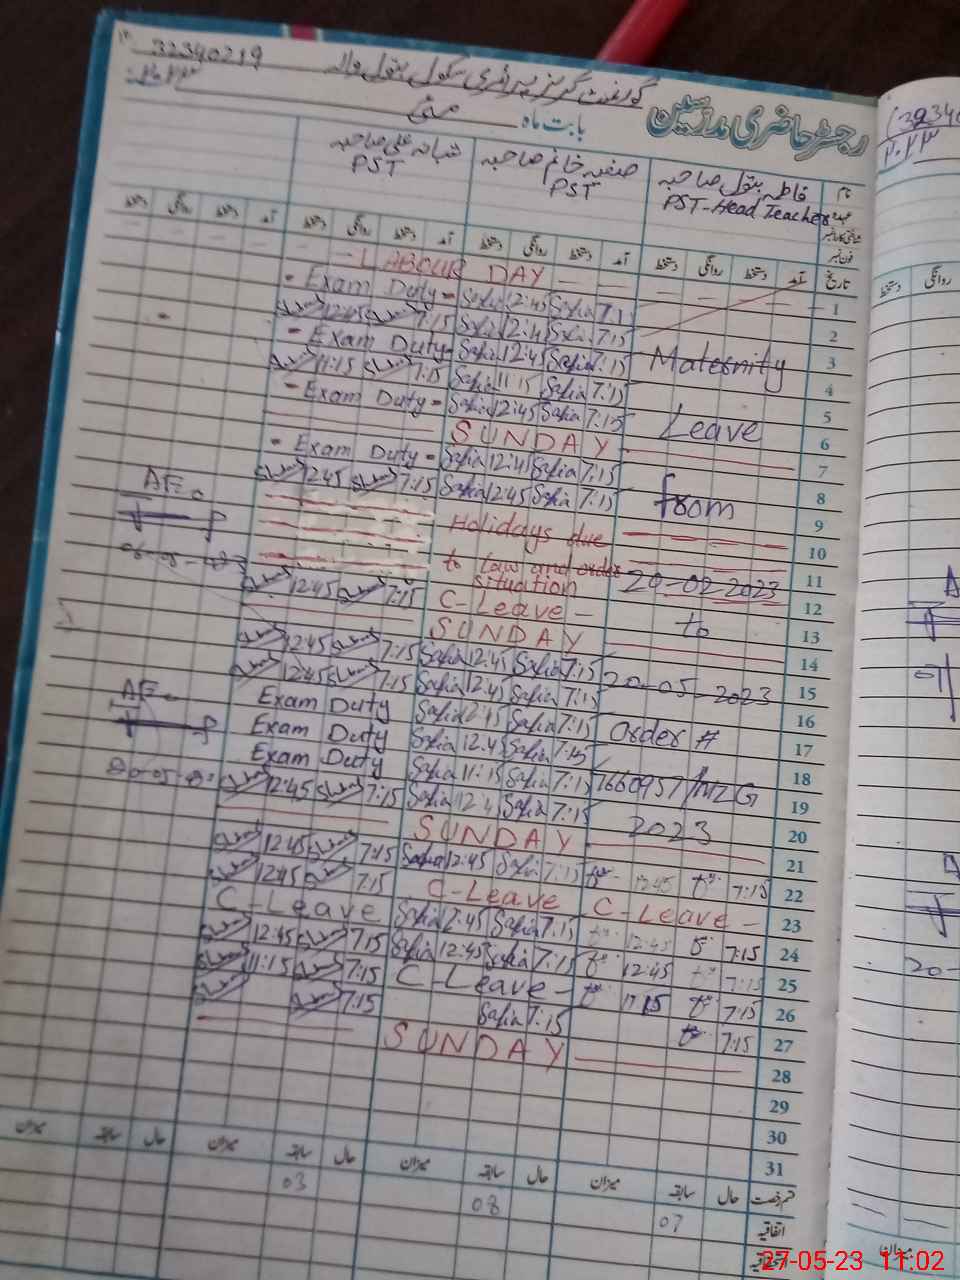 32340219 گورنمنٹ گرلز پرائمری سکول بتول والہ
رجسٹر حاضری مدرسین
بابت ماہ مئی
فاطمہ بتول صاحبہ
PST-Head Teacher
صفیہ خانم صاحبہ
PST
شبانہ علی صاحبہ
PST
نام
عہدہ
فون نمبر
تاریخ
آمد دستخط روانگی دستخط آمد دستخط روانگی دستخط آمد دستخط روانگی دستخط آمد دستخط روانگی دستخط
1 - LABOUR DAY -
2 7:15 Safia 12:45 Safia - Exam Duty -
3 7:15 Safia 12:45 Safia 7:15 12:45
4 7:15 Safia 12:45 Safia - Exam Duty -
5 7:15 Safia 11:15 Safia 7:15 11:15
6 7:15 Safia 12:45 Safia - Exam Duty -
7 SUNDAY
8 7:15 Safia 12:45 Safia - Exam Duty -
9 7:15 Safia 12:45 Safia 7:15 12:45
10 Holidays due
11 to law and order
12 situation
13 C-Leave - 7:15 12:45
14 SUNDAY
15 7:15 Safia 12:45 Safia 7:15 12:45
16 7:15 Safia 12:45 Safia 7:15 12:45
17 7:15 Safia 12:45 Safia Exam Duty
18 7:15 Safia 12:45 Safia Exam Duty
19 7:15 Safia 11:15 Safia Exam Duty
20 7:15 Safia 12:45 Safia 7:15 12:45
21 SUNDAY
22 7:15 12:45 7:15 Safia 12:45 Safia 7:15 12:45
23 C-Leave - C-Leave 7:15 12:45
24 7:15 12:45 7:15 Safia 12:45 Safia C-Leave
25 7:15 12:45 7:15 Safia 12:45 Safia 7:15 12:45
26 7:15 11:15 C-Leave - 7:15 11:15
27 7:15 7:15 Safia 7:15
28 SUNDAY
29
30
31
Maternity
Leave
from
20-02-2023
to
20-05-2023
Order #
1660957/MZG
2023
AE
AE
حال سابقہ میزان حال سابقہ میزان حال سابقہ میزان حال سابقہ میزان
قسم رخصت
اتفاقیہ
07
08
03
32340
۲۰۲۳
روانگی دستخط
20-
میزان
27-05-23 11:02